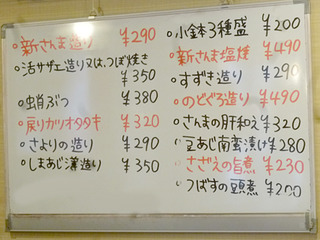 ○新さんま造り ¥290
○活サザエ造り又は、つぼ焼き
¥350
蛸ぶつ ¥380
○戻りカツオタタキ ¥320
○さよりの造り ¥290
○しまあじ薄造り ¥350
○小鉢3種盛 ¥200
○新さんま塩焼 ¥490
○すずき造り ¥290
○のどぐろ造り ¥490
○さんまの肝和え ¥320
○豆あじ南蛮漬け ¥280
○さざえの旨煮 ¥230
○つばすの頭煮 ¥200